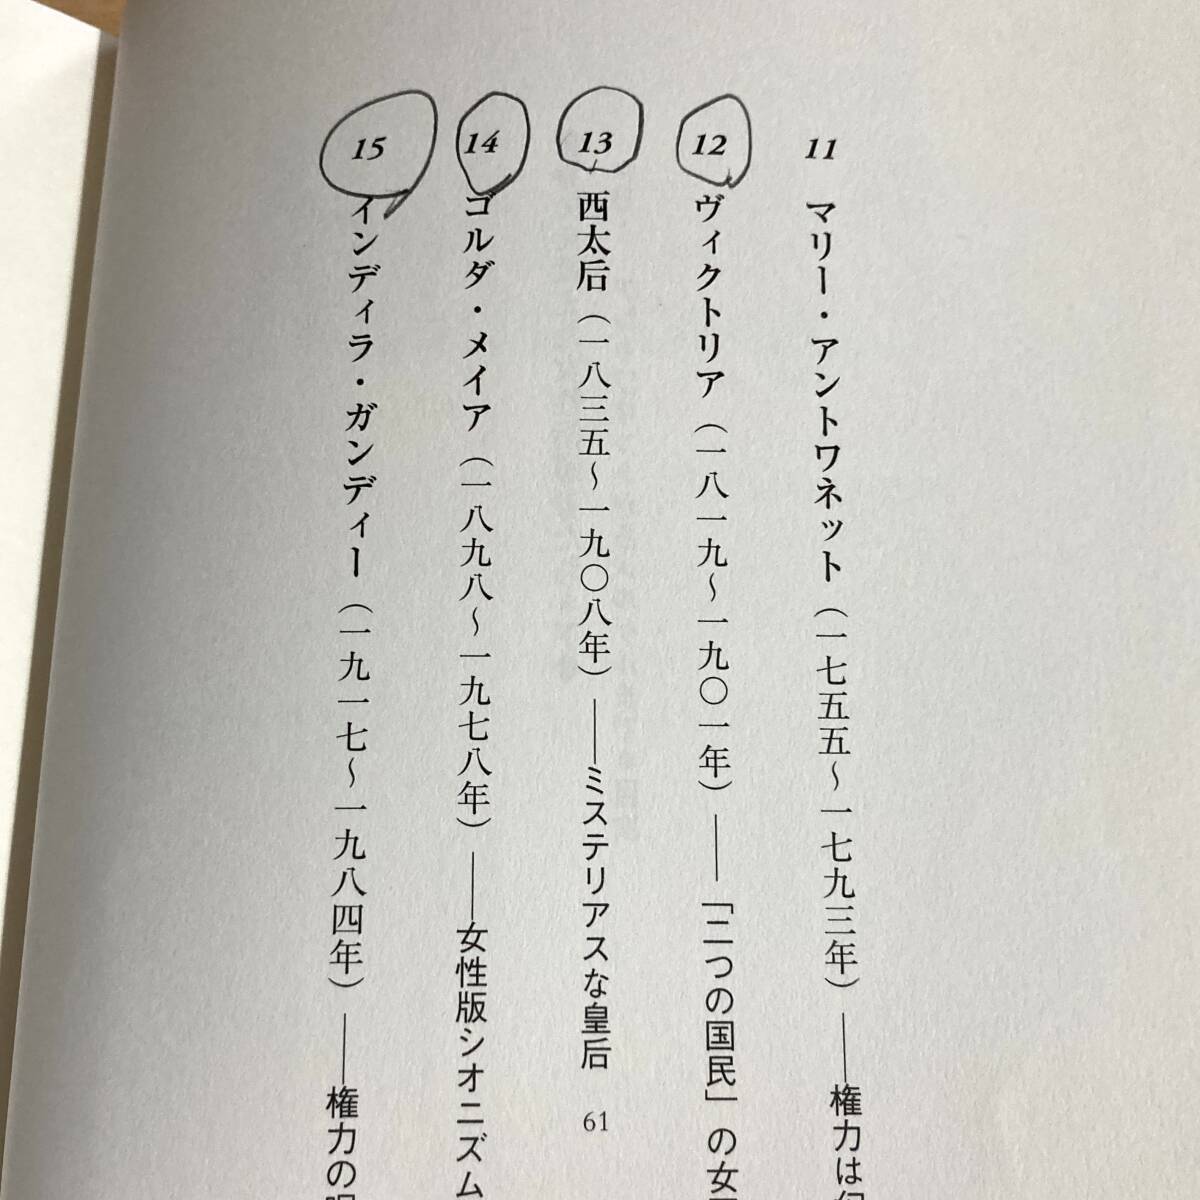 11 マリー・アントワネット（一七五五〜一七九三年）――権力は
12 ヴィクトリア（一八一九〜一九〇一年）――「二つの国民」の女
13 西太后（一八三五〜一九〇八年）――ミステリアスな皇后 61
14 ゴルダ・メイア（一八九八〜一九七八年）――女性版シオニズム
15 インディラ・ガンディー（一九一七〜一九八四年）――権力の